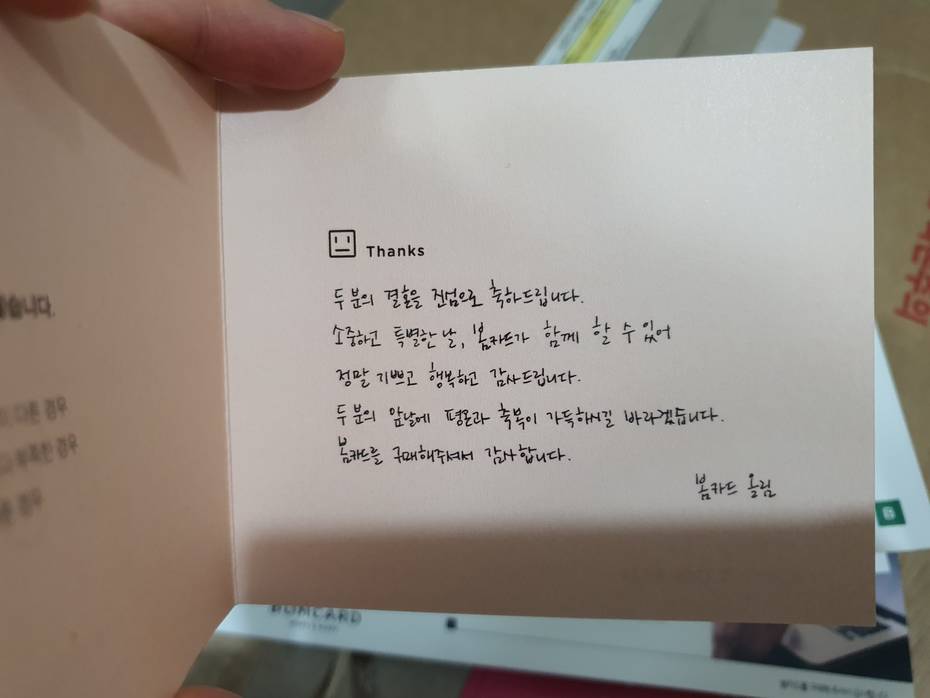 Thanks
두 분의 결혼을 진심으로 축하드립니다.
소중하고 특별한 날, 봄카드가 함께 할 수 있어
정말 기쁘고 행복하고 감사드립니다.
두 분의 앞날에 평온과 축복이 가득하시길 바라겠습니다.
봄카드를 구매해주셔서 감사합니다.
봄카드 올림
습니다.
다른 경우
부족한 경우
경우
BOMCARD